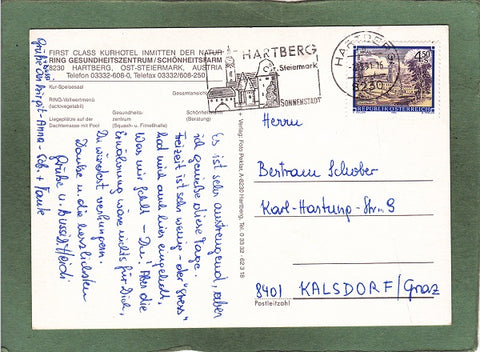 FIRST CLASS KURHOTEL INMITTEN DER NATUR
RING GESUNDHEITSZENTRUM / SCHÖNHEITSFARM
8230 HARTBERG, OST-STEIERMARK, AUSTRIA
Telefon 03332-608-0, Telefax 03332-608-250
Kur-Speisesaal
Gesamtansicht
RING-Vollwertmenü
Liegeplätze auf der
Dachterrasse mit Pool
Gesundheits-
zentrum
(Squash- u. Fitneßhalle)
Schönheitsfarm
(Beratung)
HARTBERG
Steiermark
SONNENSTADT
HARTBERG
8230
4.50
REPUBLIK ÖSTERREICH
Es ist sehr anstrengend, aber
ich genieße diese Tage.
Freizeit ist sehr wenig - der "Stress"
hat mich auch hier eingeholt.
Was mir fehlt - Du. Aber die
Ernährung wäre nichts für Dich,
Du würdest verhungern.
Danke u. die herzlichsten
Grüße u. Bussi Heidi
Grüße an Birgit-Anna
+ Verlag: Foto Pexlar, A-8230 Hartberg, Tel. 0 33 32 - 62 3 18
Herrn
Bertram Schober
Karl-Hartung-Str. 9
8401 KALSDORF/Graz
Postleitzahl